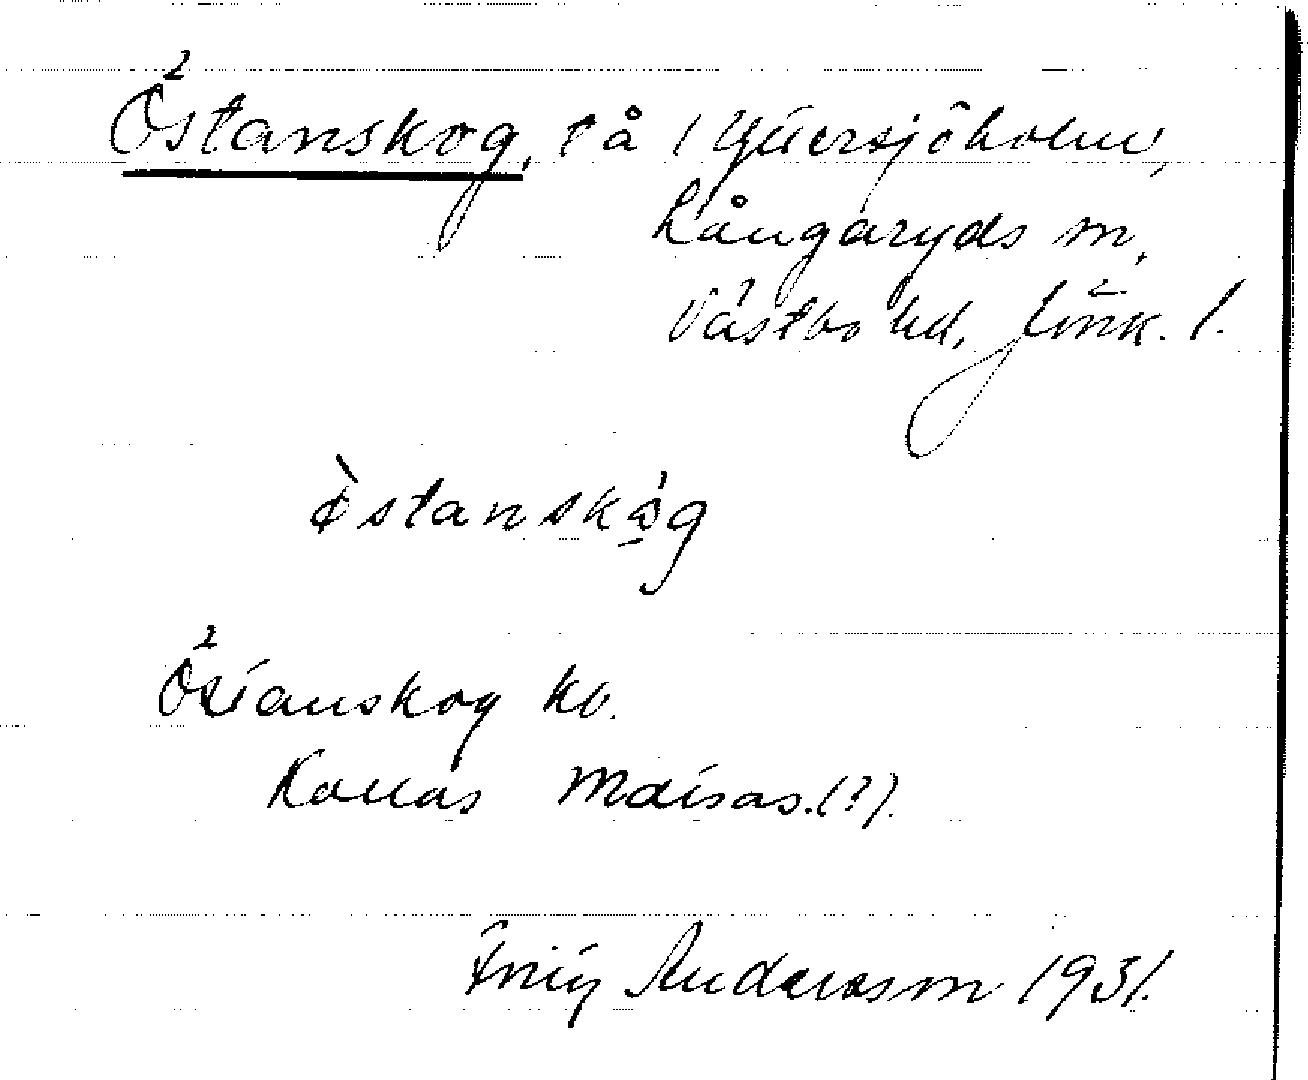 Östanskog, få i Yttersjöholm,
Långaryds sn,
Västbo hd, Jönk. l.
östanskåg
Östanskog kb.
Kallas Maisas.(?).
Fritz Andersson 1931.